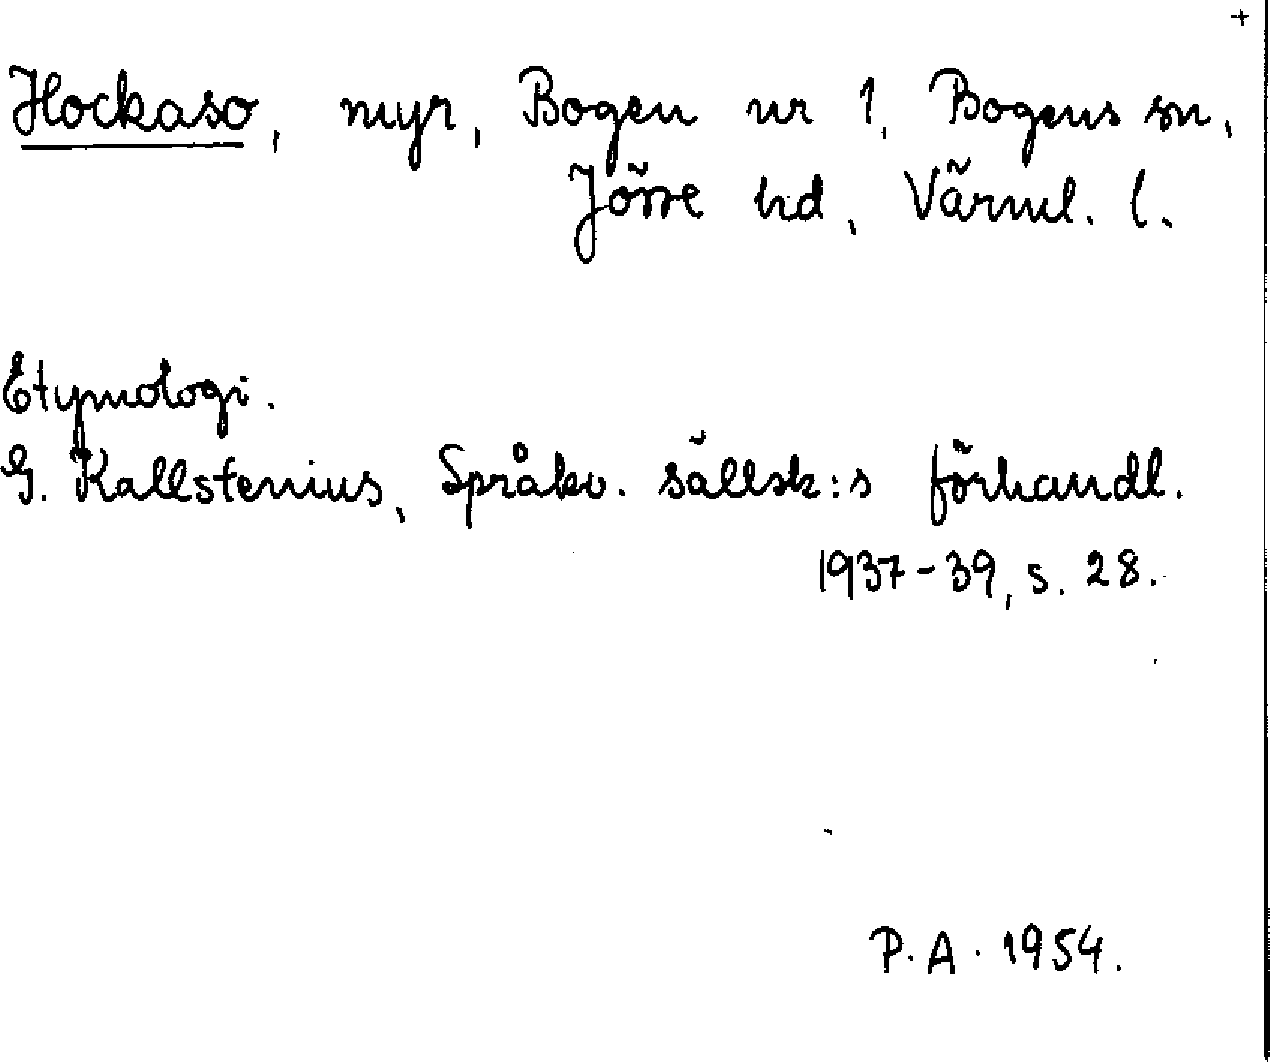 +
Hockaso, myr, Bogen nr 1, Bogens sn,
Jösse hd, Värml. l.
Etymologi.
G. Kallstenius, Språkv. sällsk:s förhandl.
1937-39, s. 28.
P. A. 1954.